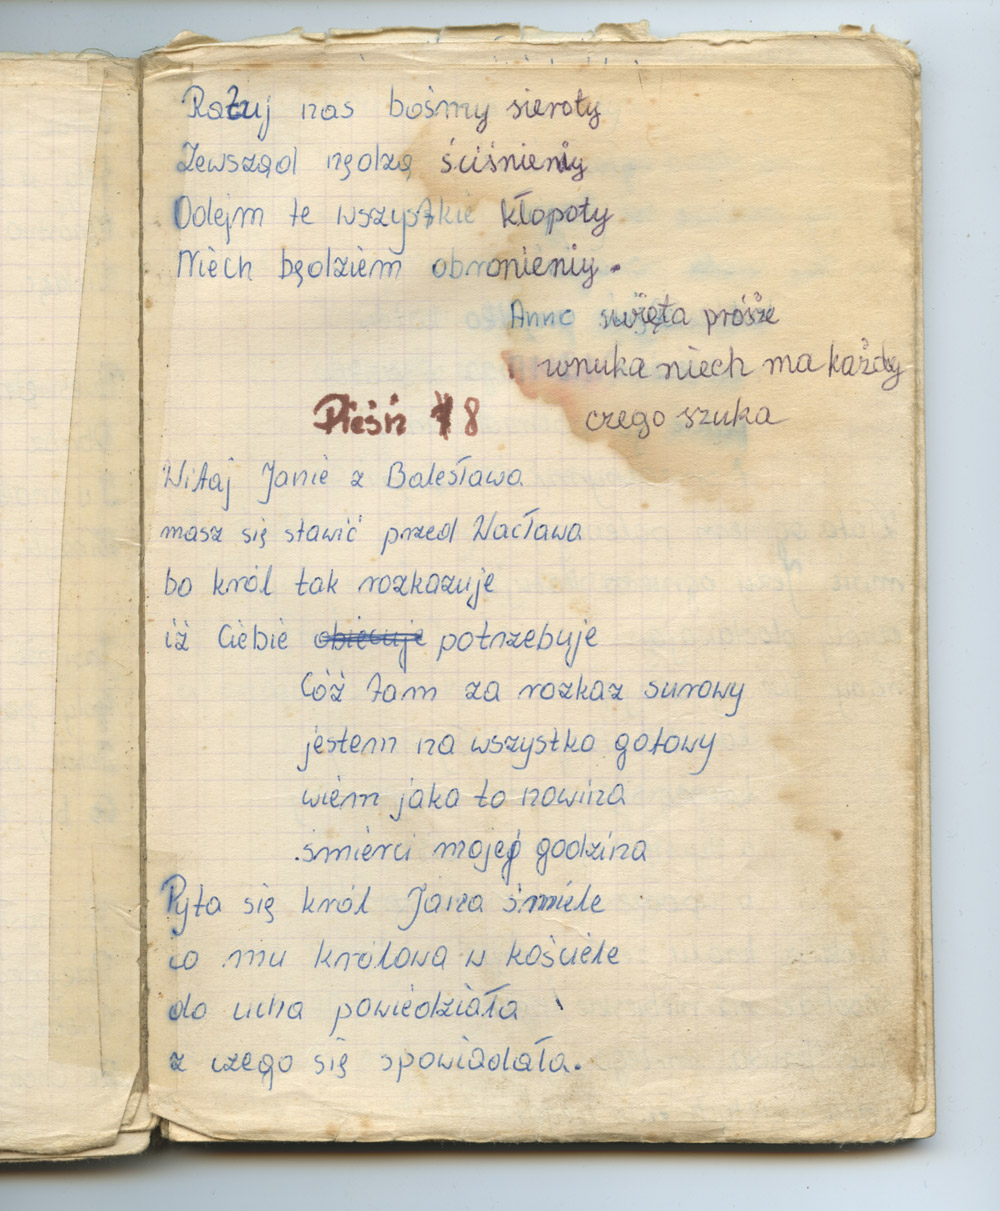 Ratuj nas bośmy sieroty
Zewsząd nędzą ściśnieniy
Odejm te wszystkie kłopoty
Niech będziem obronieniy.
Anno święta prósże
wnuka niech ma każdy
czego szuka
Pieśń 8
Witaj Janie z Balesława
masz się stawić przed Wacława
bo król tak rozkazuje
iż Ciebie obiecuje potrzebuje
Cóż tam za rozkaz surowy
jestem na wszystko gotowy
wiem jaka to nowina
śmierci mojej godzina
Pyta się król Jana śmiele
co mu królowa w kościele
do ucha powiedziała
z czego się spowiadała.